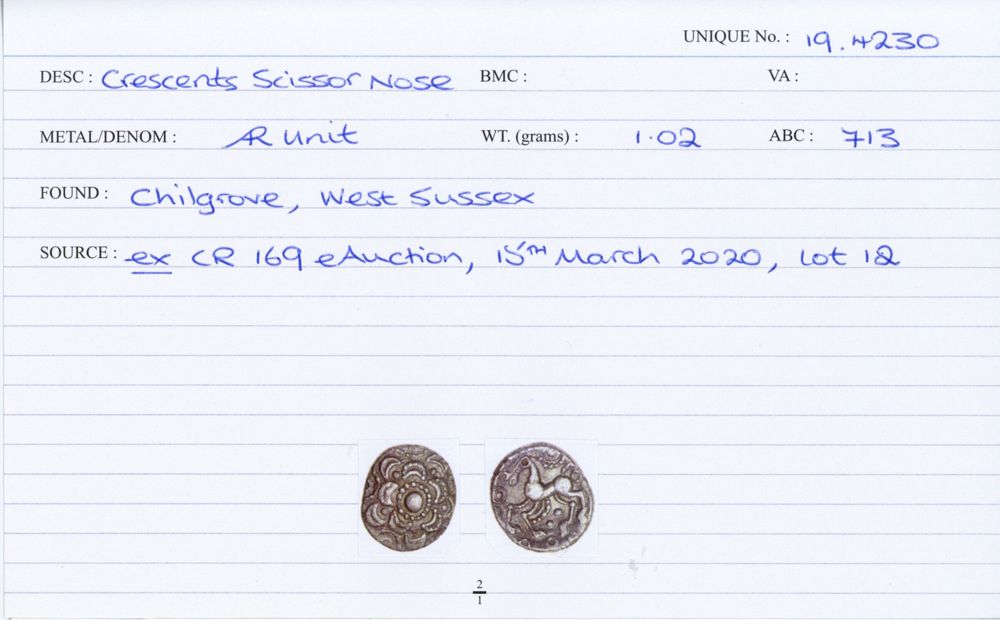 UNIQUE No. : 19.4230
DESC : Crescents Scissor Nose BMC : VA :
METAL/DENOM : AR Unit WT. (grams) : 1.02 ABC : 713
FOUND : Chilgrove, West Sussex
SOURCE : ex CR 169 eAuction, 15TH March 2020, Lot 12
2
1